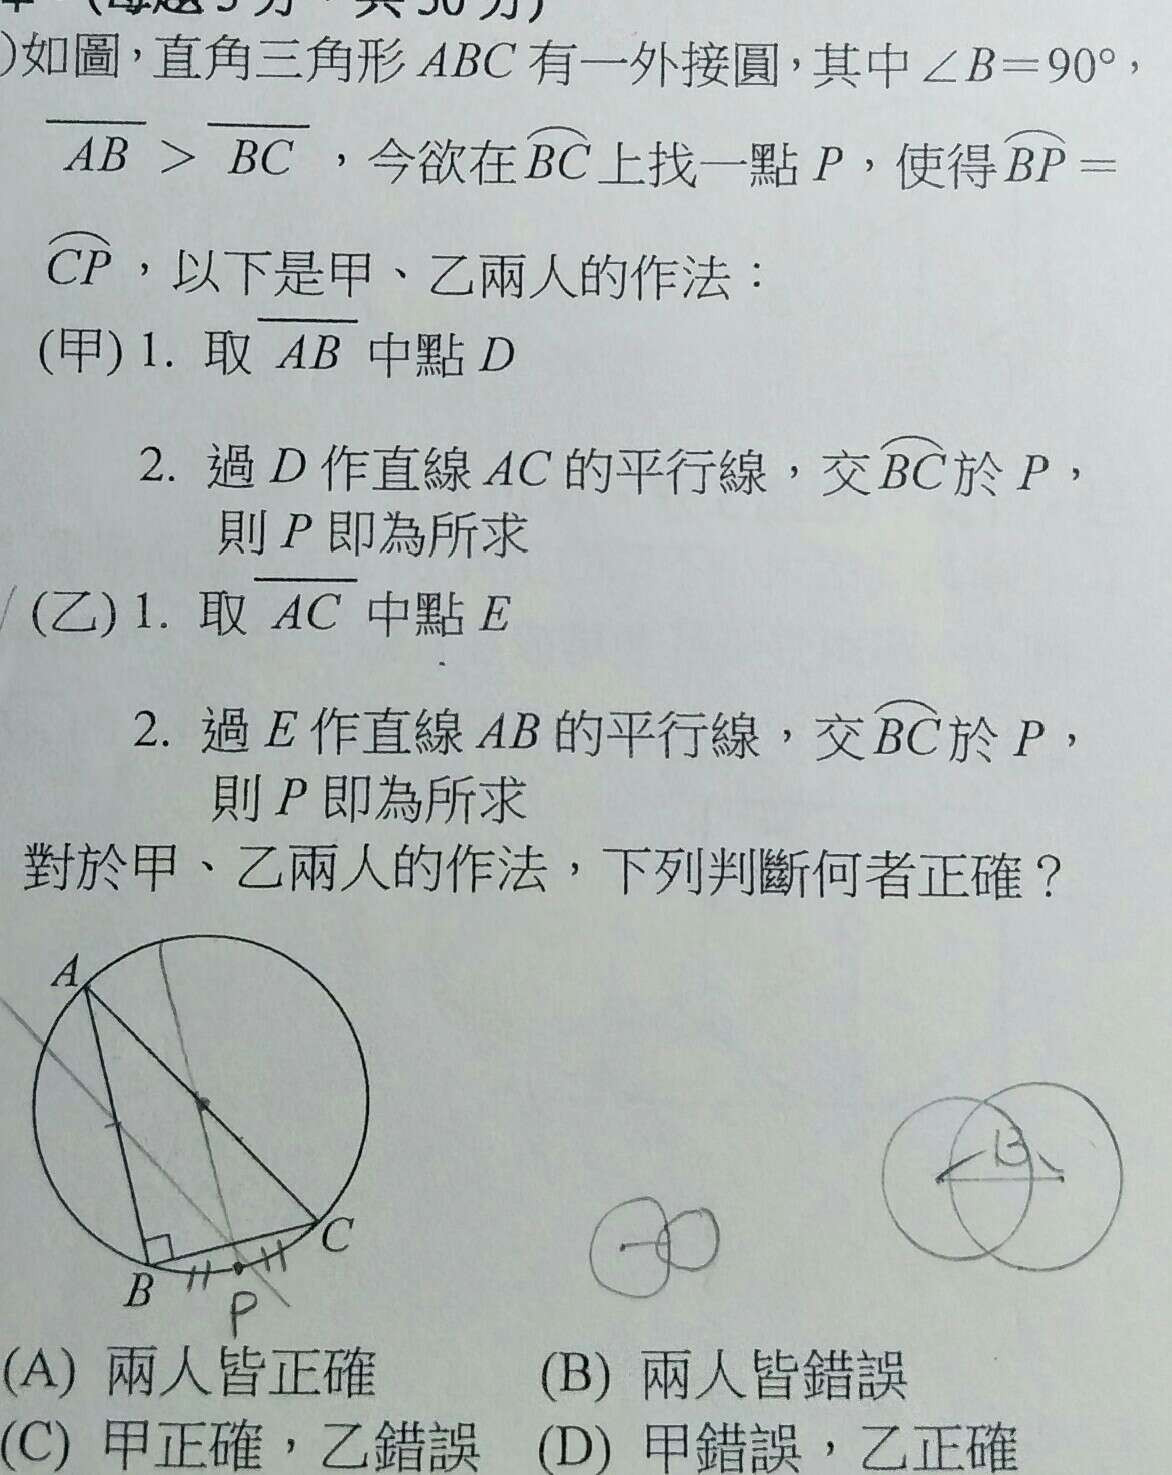 )如圖，直角三角形 ABC 有一外接圓，其中∠B＝90°，
AB ＞ BC ，今欲在BC上找一點 P，使得BP＝
CP，以下是甲、乙兩人的作法：
(甲) 1. 取 AB 中點 D
2. 過 D 作直線 AC 的平行線，交BC於 P，
則 P 即為所求
(乙) 1. 取 AC 中點 E
2. 過 E 作直線 AB 的平行線，交BC於 P，
則 P 即為所求
對於甲、乙兩人的作法，下列判斷何者正確？
A
B
C
P
(A) 兩人皆正確 (B) 兩人皆錯誤
(C) 甲正確，乙錯誤 (D) 甲錯誤，乙正確